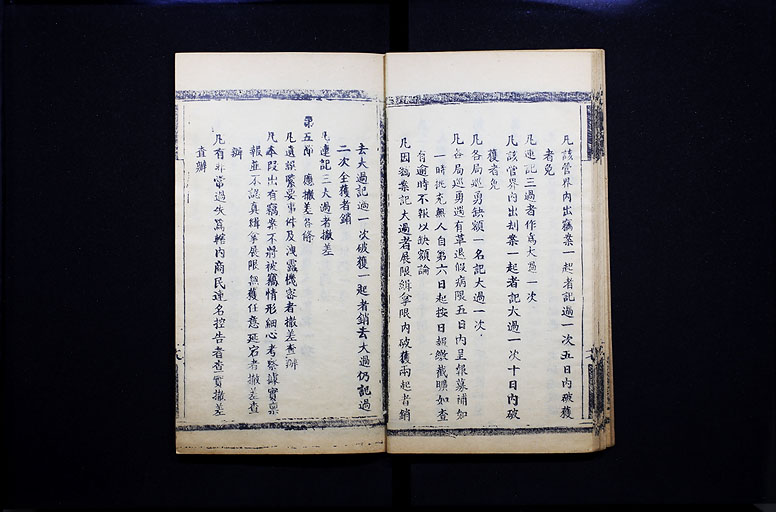 凡該管界內出竊案一起者記過一次五日內破獲
者免
凡連記三過者作爲大過一次
凡該管界內出刦案一起者記大過一次十日內破
獲者免
凡各局巡勇缺額一名記大過一次
凡各局巡勇遇有革退假病限五日內呈報募補如
一時挑充無人自第六日起按日報繳截曠如查
有逾時不報以缺額論
凡因竊案記大過者展限緝拿限內破獲兩起者銷
去大過記過一次破獲一起者銷去大過仍記過
二次全獲者銷
凡連記三大過者撤差
第五節 應撤差各條
凡遺誤緊要事件及洩露機密者撤差查辦
凡本段出有竊案不將被竊情形細心考察據實稟
報並不認真緝拿展限無獲任意延宕者撤差查
辦
凡有非當過失爲轄內商民連名控告者查實撤差
查辦